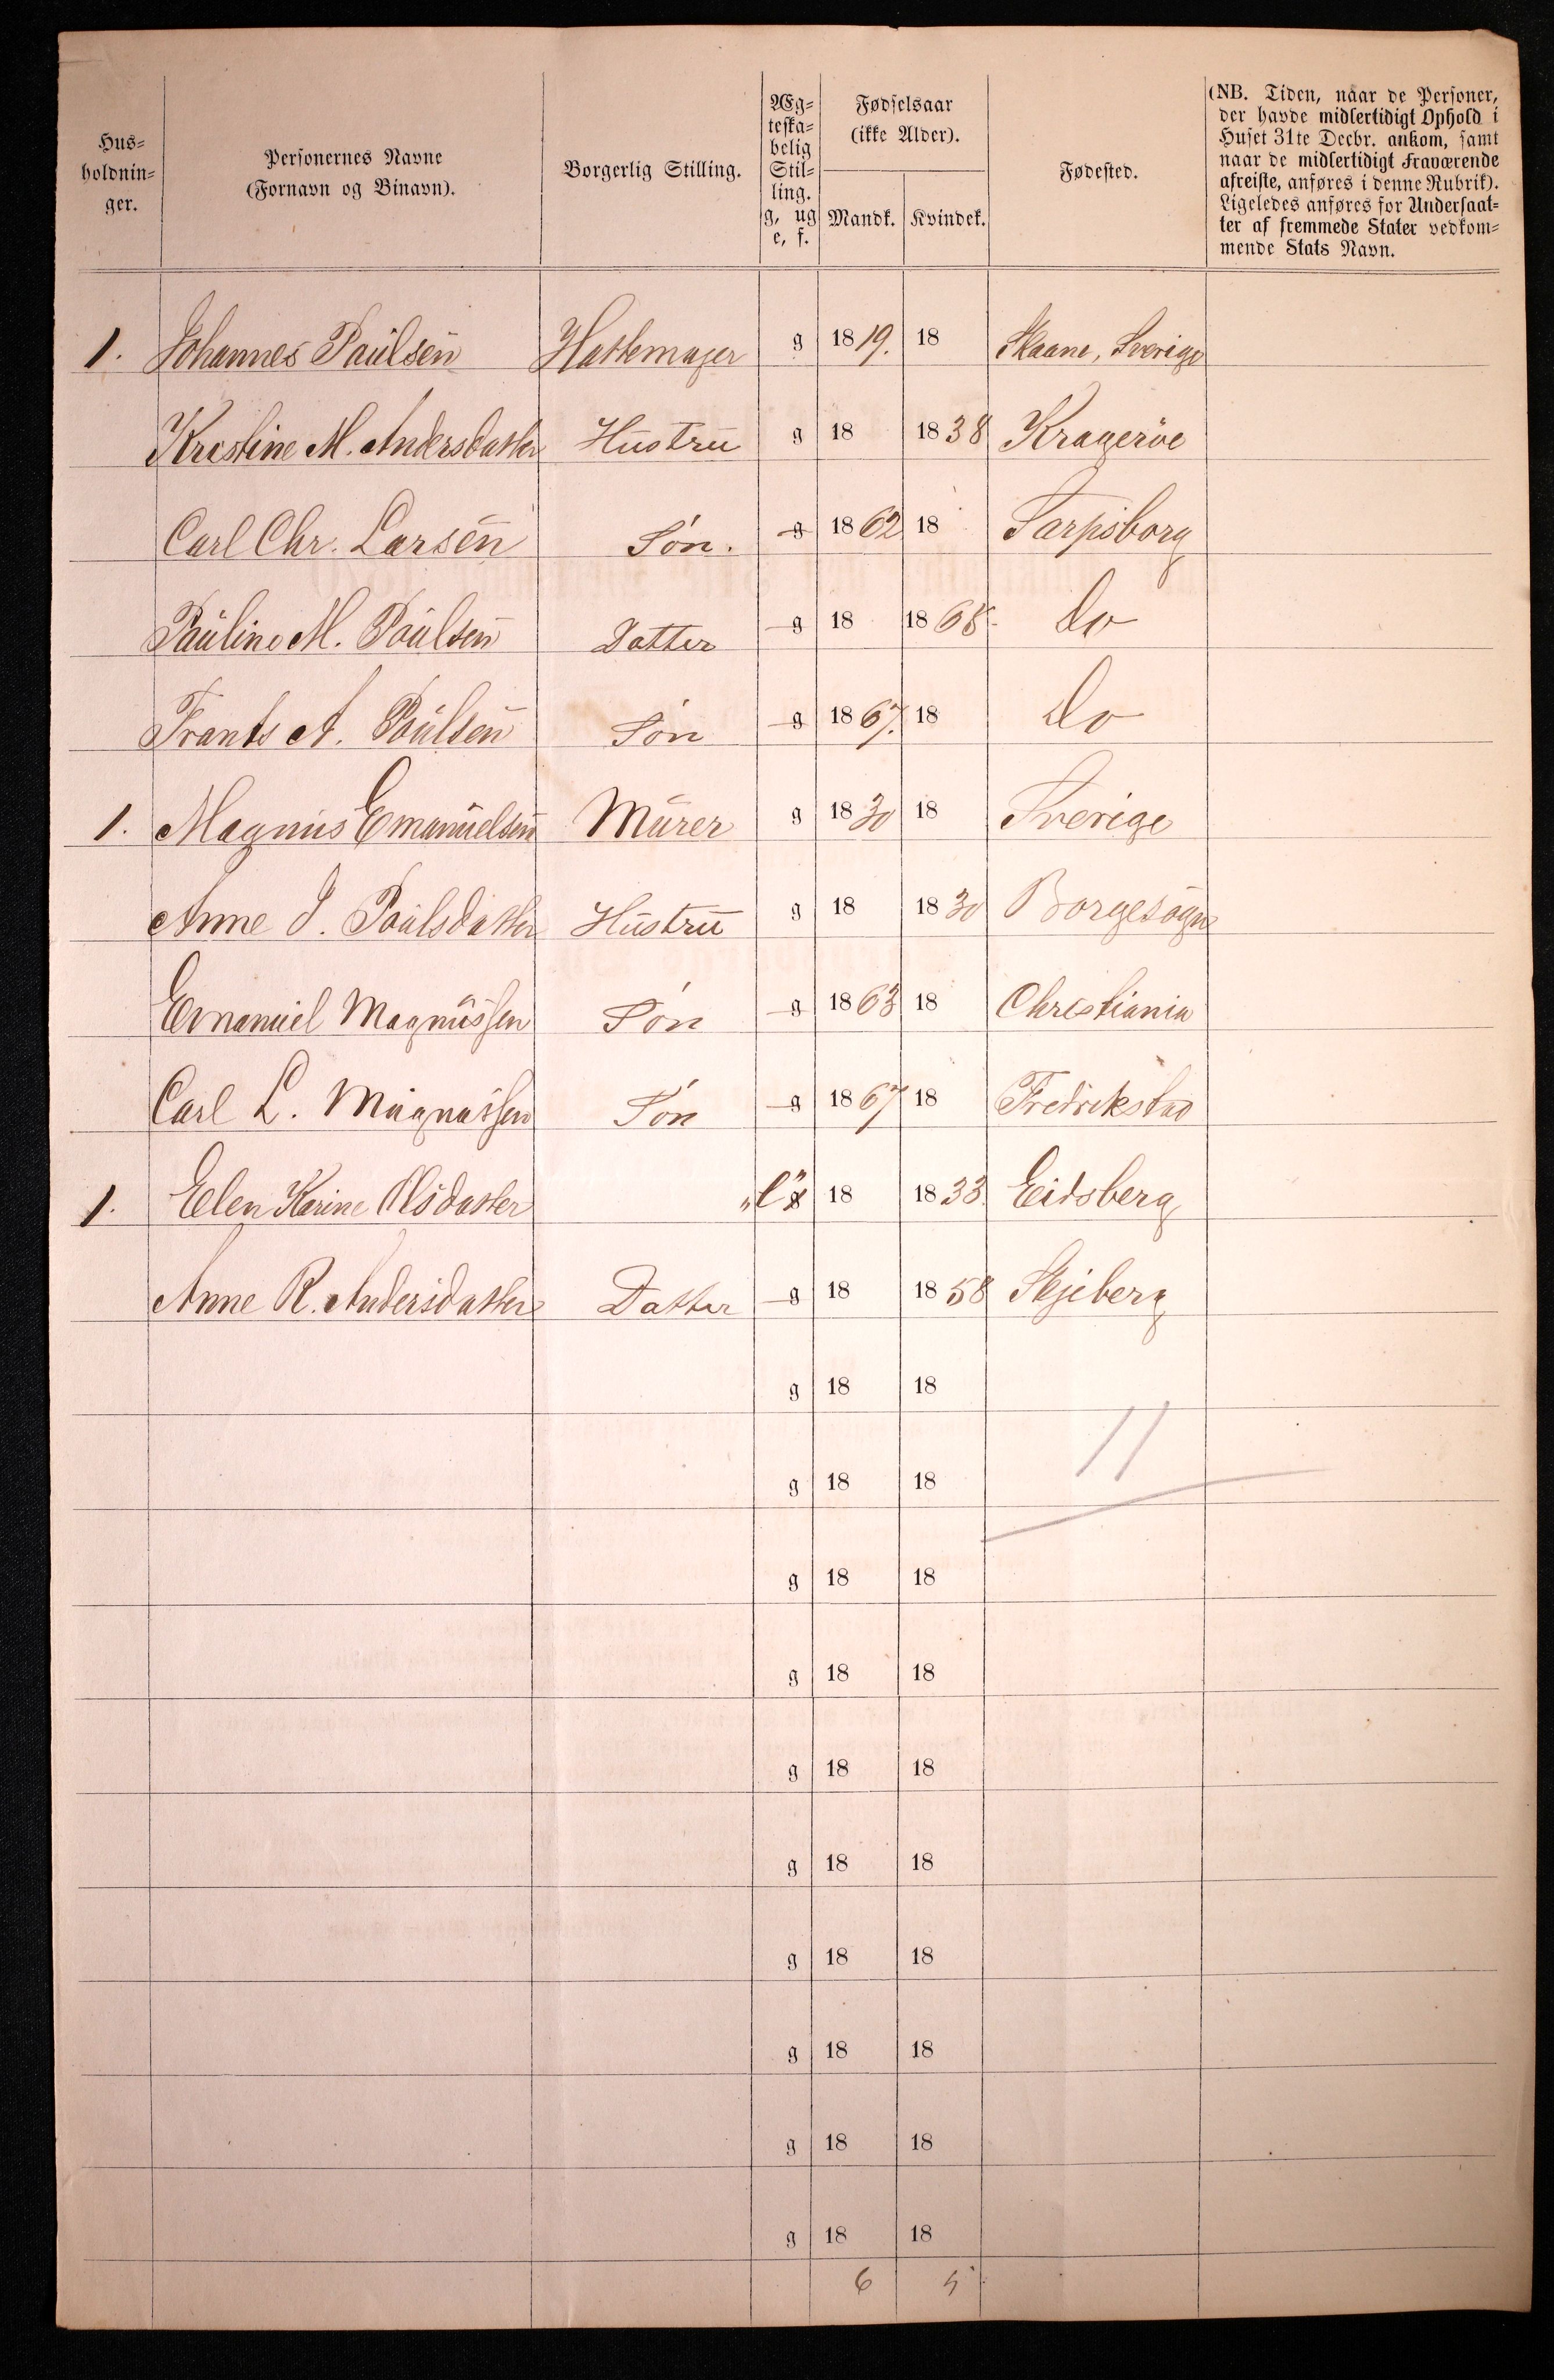 Hus=
holdnin=
ger.
Personernes Navne
(Fornavn og Binavn).
Borgerlig Stilling.
Æg=
teska=
belig
Stil=
ling.
g, ug
e, f.
Fødselsaar
(ikke Alder).
Mandk.
Kvindek.
Fødested.
(NB. Tiden, naar de Personer,
der havde midlertidigt Ophold i
Huset 31te Decbr. ankom, samt
naar de midlertidigt Fraværende
afreiste, anføres i denne Rubrik).
Ligeledes anføres for Undersaat=
ter af fremmede Stater vedkom=
mende Stats Navn.
1. Johannes Paulsen Hattemager g 1819. 18 Skaane, Sverige
Kristine M. Andersdatter Hustru g 18 1838 Kragerøe
Carl Chr. Larsen Søn. g 1862 18 Sarpsborg
Pauline M. Poulsen Datter g 18 1868 Do
Frants A. Poulsen Søn g 1867. 18 Do
1. Magnus Emanuelsen Murer g 1830 18 Sverige
Anne J. Poulsdatter Hustru g 18 1830 Borgesogn
Emanuel Magnussen Søn g 1863 18 Christiania
Carl L. Magnussen Søn g 1867 18 Fredrikstad
1. Eelen Karine Olsdatter "e" g 18 1833. Eidsberg
Anne R. Andersdatter Datter g 18 1858 Skjeberg
g 18 18
11
g 18 18
g 18 18
g 18 18
g 18 18
g 18 18
g 18 18
g 18 18
g 18 18
g 18 18
6 5